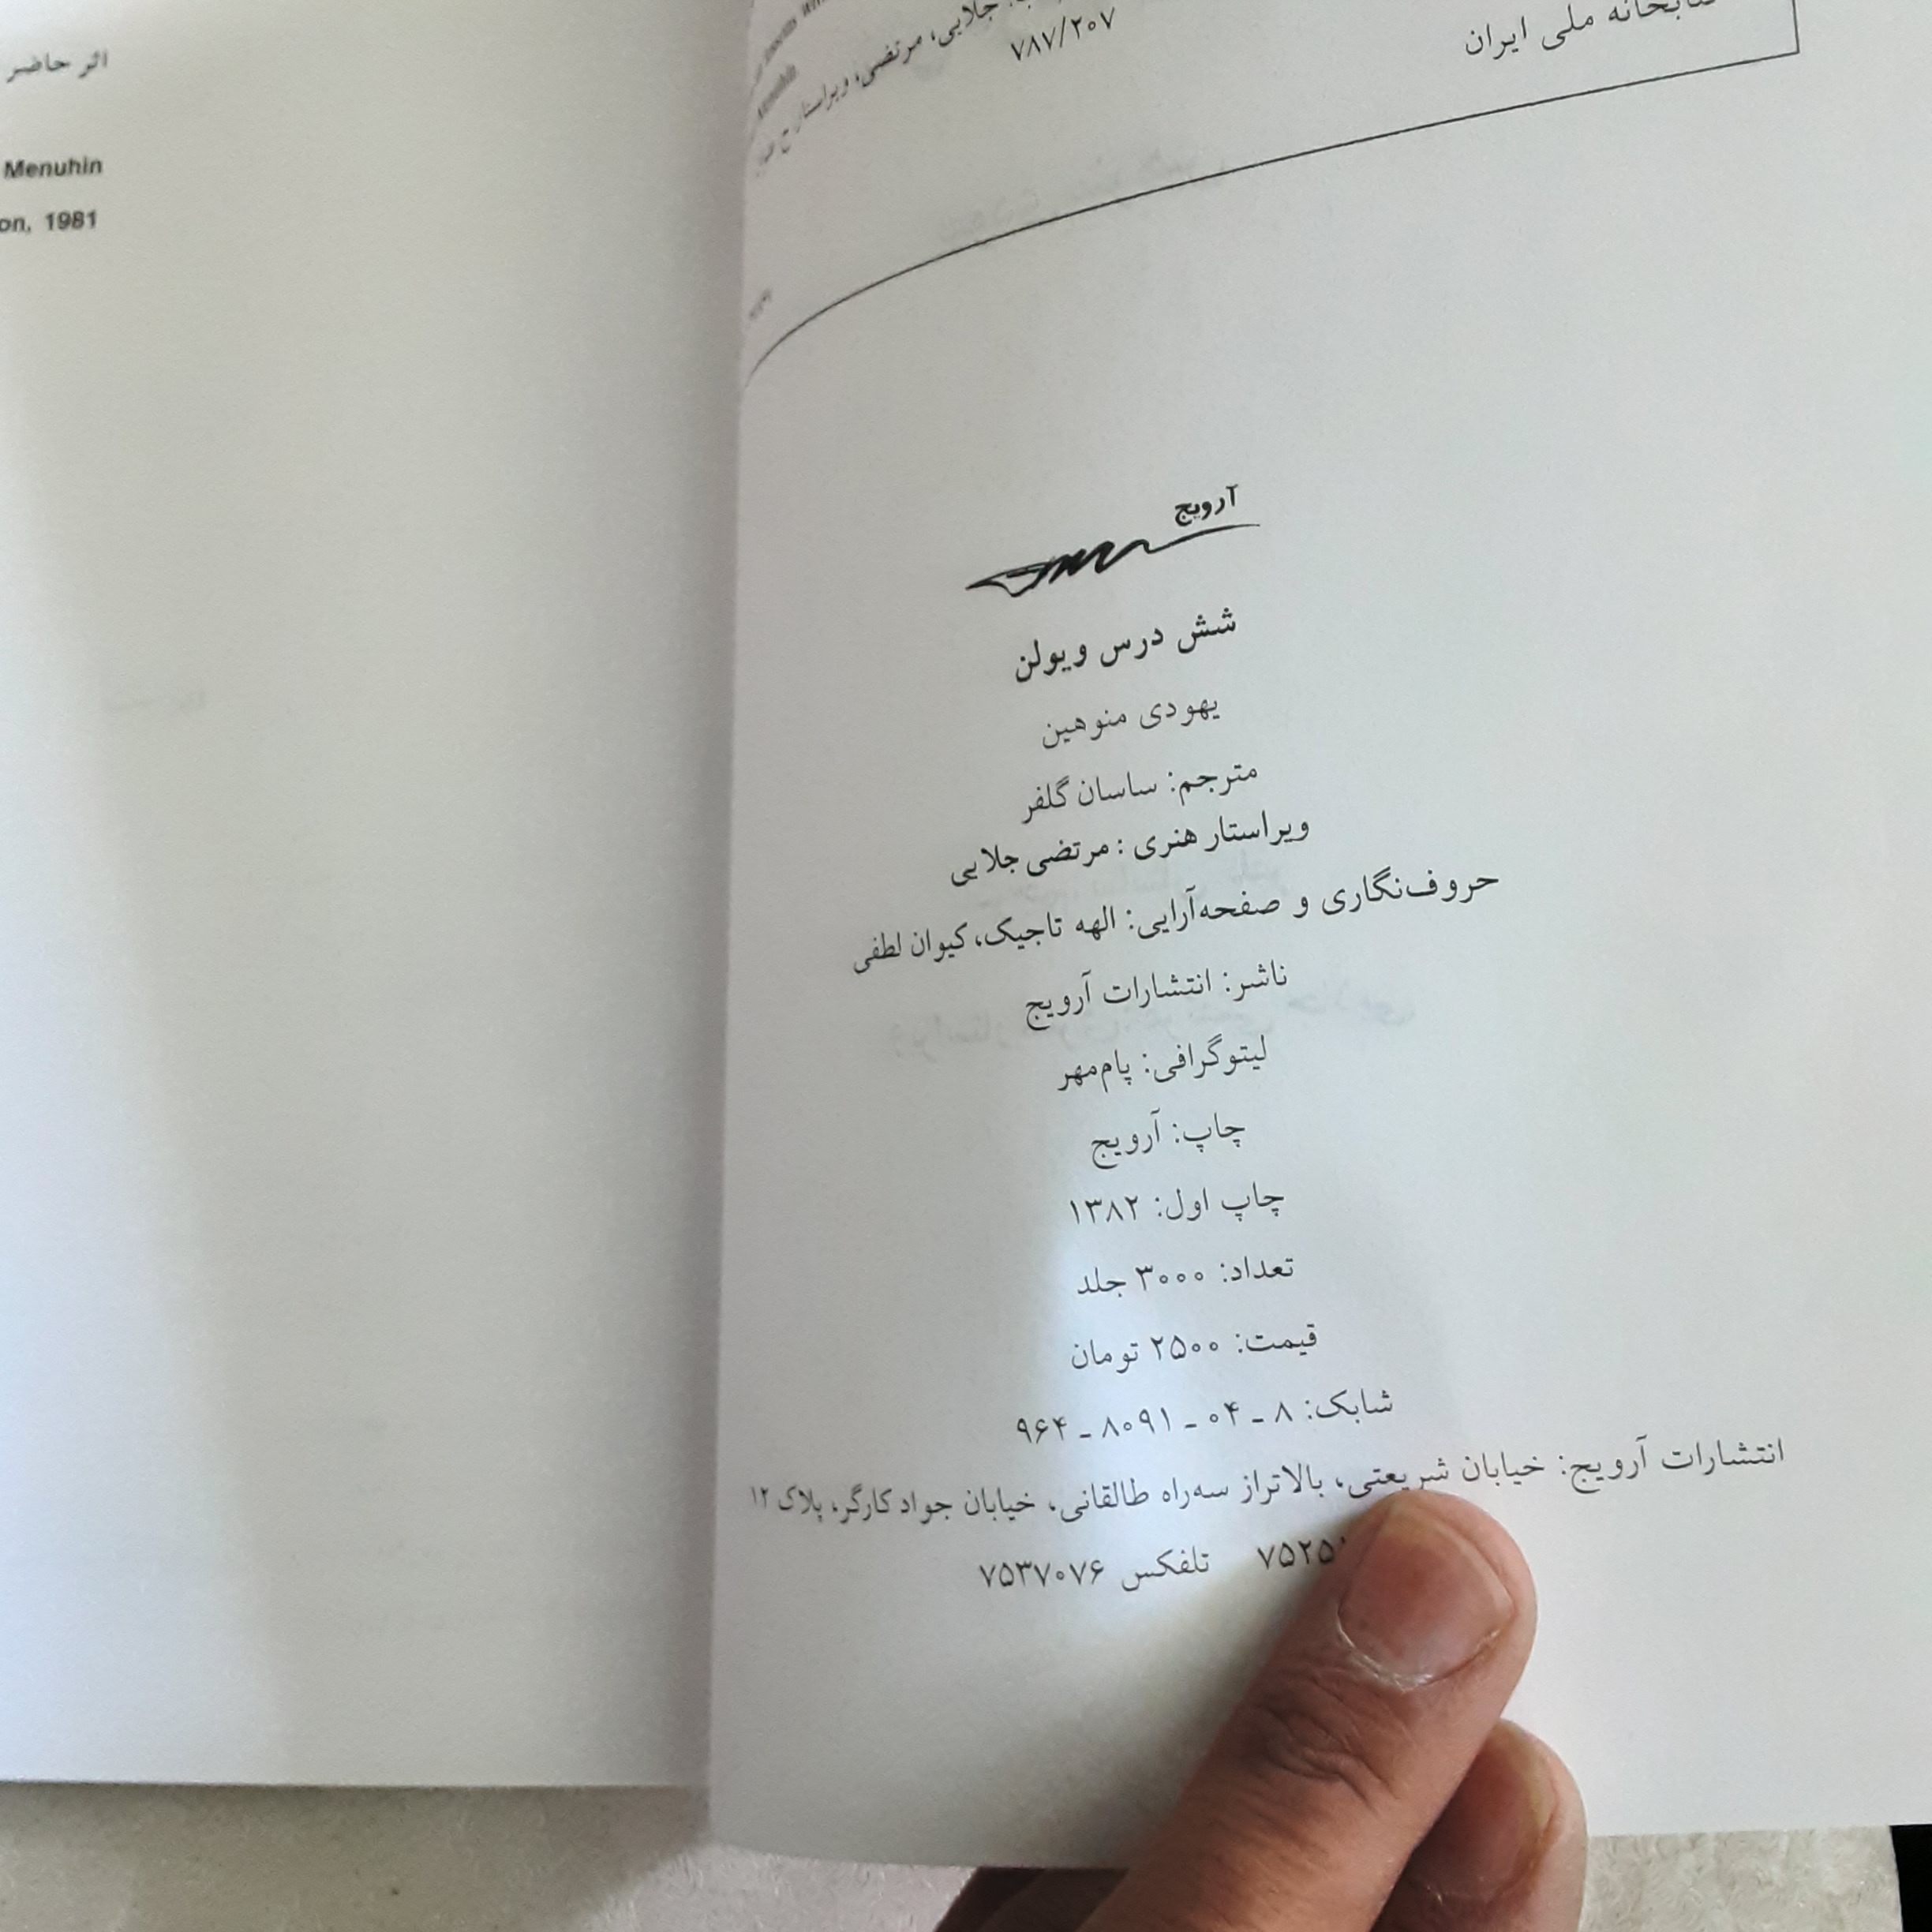 اثر حاضر
Menuhin
1981
جلایی، مرتضی، ویراستار
۷۸۷/۲۰۷
ملی ایران
آرویج
شش درس ویولن
یهودی منوهین
مترجم: ساسان گلفر
ویراستار هنری : مرتضی جلایی
حروف‌نگاری و صفحه‌آرایی: الهه تاجیک، کیوان لطفی
ناشر: انتشارات آرویج
لیتوگرافی: پام‌مهر
چاپ: آرویج
چاپ اول: ۱۳۸۲
تعداد: ۳۰۰۰ جلد
قیمت: ۲۵۰۰ تومان
شابک: ۸ - ۰۴ - ۸۰۹۱ - ۹۶۴
انتشارات آرویج: خیابان شریعتی، بالاتراز سه‌راه طالقانی، خیابان جواد کارگر، پلاک ۱۲
تلفکس ۷۵۳۷۰۷۶